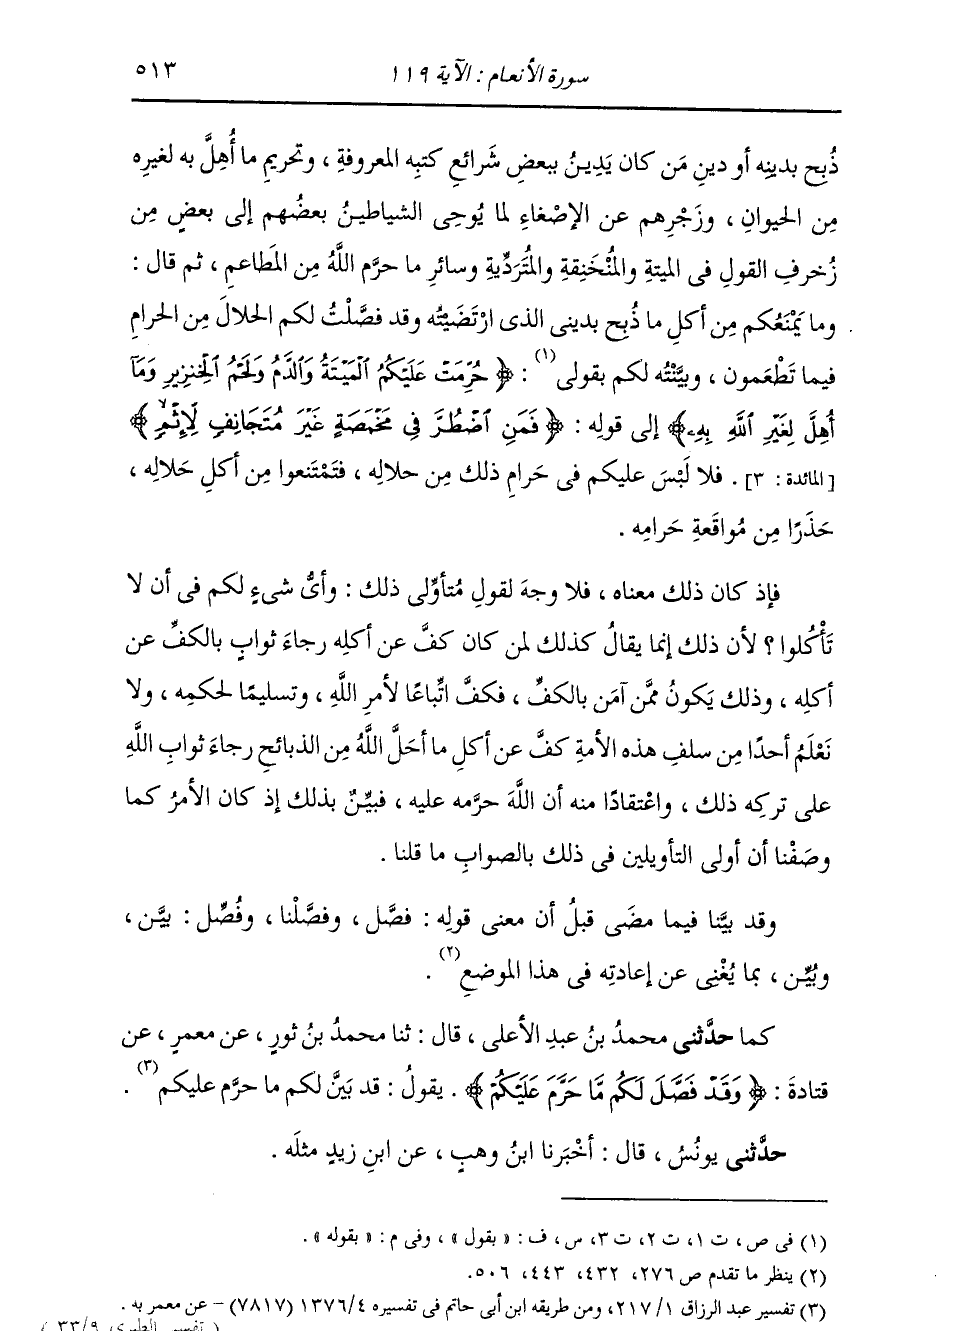 سورة الأنعام : الآية ١١٩ ٥١٣
ذُبِح بدينِه أو دينِ مَن كان يَدِينُ ببعضِ شَرائعِ كتبِه المعروفةِ ، وتحريمِ ما أُهِلَّ به لغيرِه
مِن الحيوانِ ، وزَجْرِهم عن الإصْغاءِ لما يُوحِى الشياطينُ بعضُهم إلى بعضٍ مِن
زُخرفِ القولِ فى الميتةِ والمُنْخَنِقةِ والمُتَرَدِّيةِ وسائرِ ما حرَّم اللَّهُ مِن المَطاعمِ ، ثم قال :
وما يَمْنَعُكم مِن أكلِ ما ذُبِح بدينى الذى ارْتَضَيْتُه وقد فصَّلْتُ لكم الحلالَ مِن الحرامِ
فيما تَطْعَمون ، وبيَّنْتُه لكم بقولى(١) : ﴿ حُرِّمَتْ عَلَيْكُمُ ٱلْمَيْتَةُ وَٱلدَّمُ وَلَحْمُ ٱلْخِنزِيرِ وَمَآ
أُهِلَّ لِغَيْرِ ٱللَّهِ بِهِۦ﴾ إلى قولِه : ﴿ فَمَنِ ٱضْطُرَّ فِى مَخْمَصَةٍ غَيْرَ مُتَجَانِفٍ لِإِثْمٍۙ ﴾
[المائدة : ٣] . فلا لَبْسَ عليكم فى حَرامِ ذلك مِن حلالِه ، فتَمْتَنعوا مِن أكلِ حَلالِه ،
حَذَرًا مِن مُواقَعةِ حَرامِه .
فإذ كان ذلك معناه ، فلا وجهَ لقولِ مُتأوِّلى ذلك : وأىُّ شىءٍ لكم فى أن لا
تَأْكُلوا ؟ لأن ذلك إنما يقالُ كذلك لمن كان كفَّ عن أكلِه رجاءَ ثوابٍ بالكفِّ عن
أكلِه ، وذلك يَكونُ ممَّن آمَن بالكفِّ ، فكفَّ اتِّباعًا لأمرِ اللَّهِ ، وتسليمًا لحكمِه ، ولا
نَعْلَمُ أحدًا مِن سلفِ هذه الأمةِ كفَّ عن أكلِ ما أحَلَّ اللَّهُ مِن الذبائحِ رجاءَ ثوابِ اللَّهِ
على تركِه ذلك ، واعْتقادًا منه أن اللَّهَ حرَّمه عليه ، فبيِّنٌ بذلك إذ كان الأمرُ كما
وصَفْنا أن أولى التأويلين فى ذلك بالصوابِ ما قلنا .
وقد بيَّنا فيما مضَى قبلُ أن معنى قولِه : فصَّل ، وفصَّلْنا ، وفُصِّل : بيَّن ،
وبُيِّن ، بما يُغْنِى عن إعادتِه فى هذا الموضعِ(٢) .
كما حدَّثنى محمدُ بنُ عبدِ الأعلى ، قال : ثنا محمدُ بنُ ثورٍ ، عن معمرٍ ، عن
قتادةَ : ﴿ وَقَدْ فَصَّلَ لَكُم مَّا حَرَّمَ عَلَيْكُمْ ﴾ . يقولُ : قد بَيَّن لكم ما حرَّم عليكم(٣) .
حدَّثنى يونُسُ ، قال : أخْبَرنا ابنُ وهبٍ ، عن ابنِ زيدٍ مثلَه .
(١) فى ص ، ت ١، ت ٢، ت ٣، س ، ف : « بقول » ، وفى م : « بقوله » .
(٢) ينظر ما تقدم ص ٢٧٦، ٤٣٢، ٤٤٣، ٥٠٦.
(٣) تفسير عبد الرزاق ٢١٧/١، ومن طريقه ابن أبى حاتم فى تفسيره ١٣٧٦/٤ (٧٨١٧) - عن معمر به .
( تفسير الطبرى ٣٣/٩ )